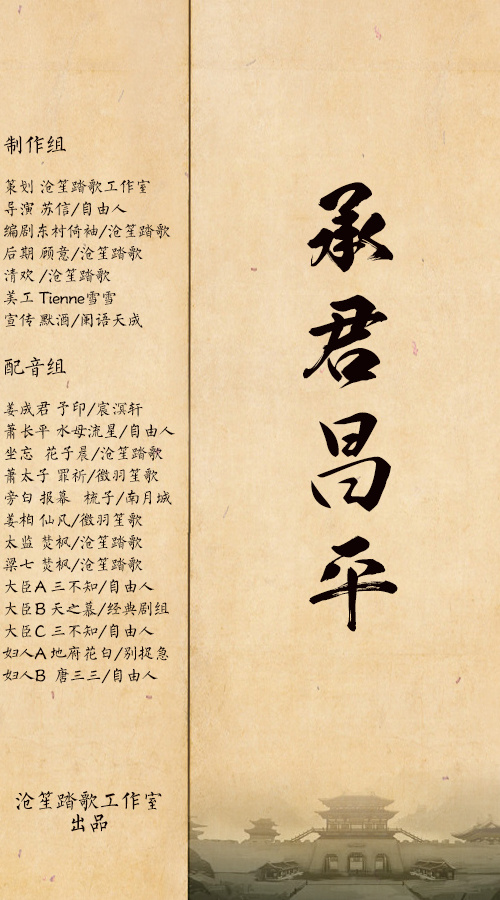 制作组
策划 沧笙踏歌工作室
导演 苏信/自由人
编剧东村倚袖/沧笙踏歌
后期 顾意/沧笙踏歌
清欢 /沧笙踏歌
美工 Tienne雪雪
宣传 默酒/阑语天成
配音组
姜成君 予印/宸溟轩
萧长平 水母流星/自由人
坐忘 花子晨/沧笙踏歌
萧太子 罪祈/徵羽笙歌
旁白 报幕 梳子/南月城
姜相 仙凡/徵羽笙歌
太监 焚枫/沧笙踏歌
梁七 焚枫/沧笙踏歌
大臣A 三不知/自由人
大臣B 天之慕/经典剧组
大臣C 三不知/自由人
妇人A 地府花白/别捉急
妇人B 唐三三/自由人
沧笙踏歌工作室
出品
承君昌平